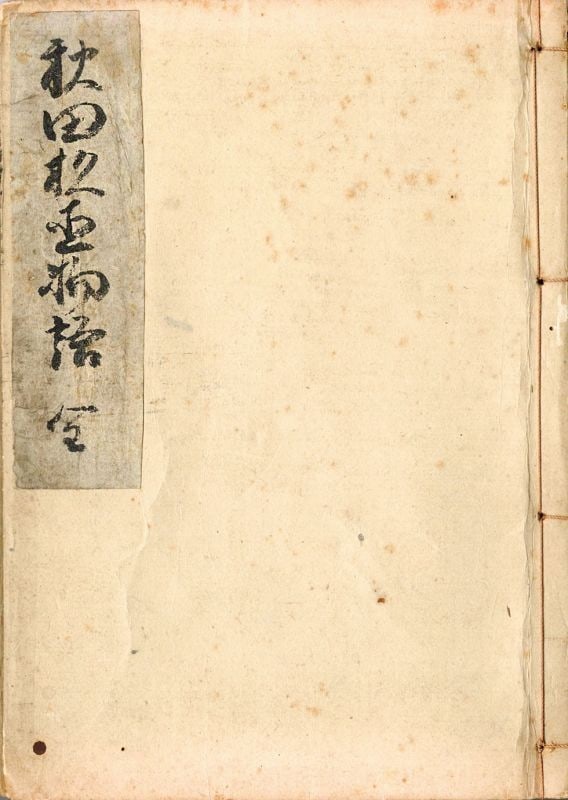 秋田杉直物語 全